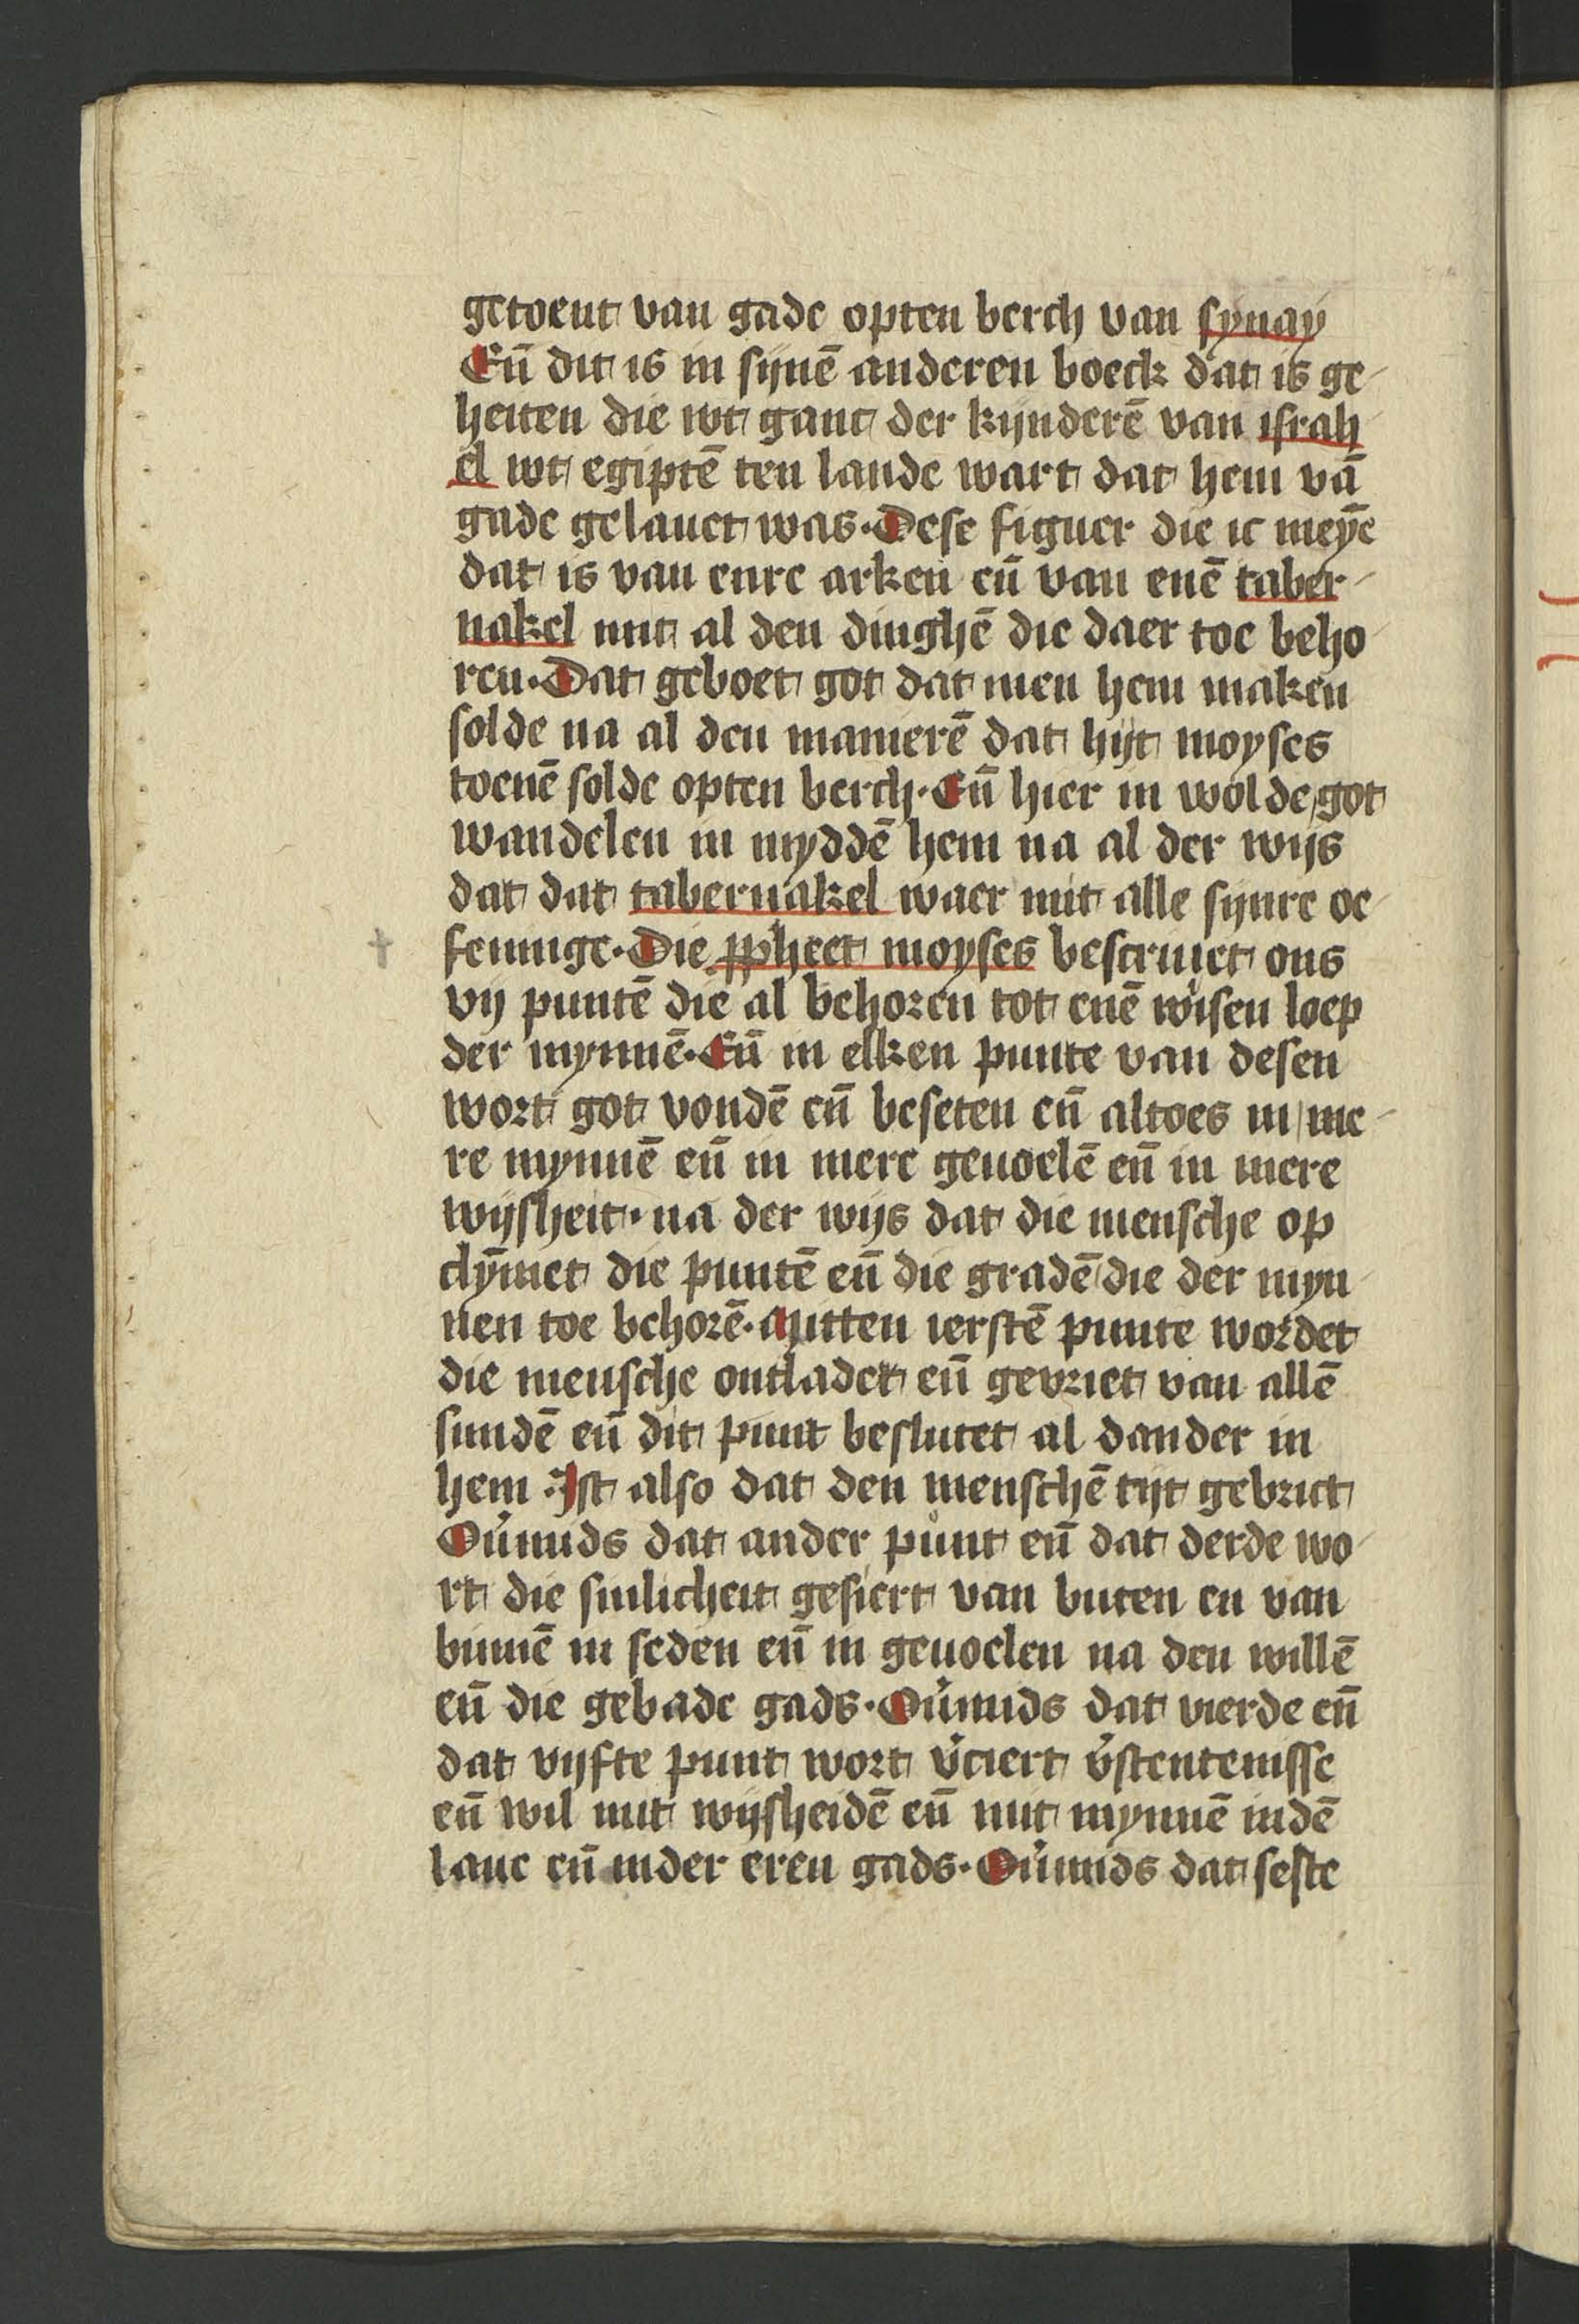 getoent van gade opten berch van synay
En̄ dit is in sijnē anderen boeck dat is ge-
heiten die wt ganc der kijnderē van israh
el wt egiptē ten lande wart dat hem vā
gade gelauet was. Dese figuer die ic meyē
dat is van enre arken en̄ van enē taber-
nakel mit al den dinghē die daer toe beho-
ren. Dat geboet got dat men hem maken
solde na al den manierē dat hijt moyses
toenē solde opten berch. En̄ hier in wolde got
wandelen in myddē hem na al der wijs
dat dat tabernakel waer mit alle sijnre oe-
feninge. Die ꝓpheet moyses bescriuet ons
vij puntē die al behoren tot enē wisen loep
der mynnē. En̄ in elken punte van desen
wort got vondē en̄ beseten en̄ altoes in me-
re mynnē en̄ in mere geuoelē en̄ in mere
wijsheit. na der wijs dat die mensche op
clȳmet die puntē en̄ die gradē die der myn-
nen toe behorē. Mitten ierstē punte wordet
die mensche ontladet en̄ gevriet van allē
sundē en̄ dit punt beslutet al dander in
hem. Ist also dat den menschē tijt gebrict
Ou̓mids dat ander punt en̄ dat derde wo-
rt die sinlicheit gesiert van buten en van
binnē in seden en̄ in geuoelen na den willē
en̄ die gebade gads. Ou̓mids dat vierde en̄
dat vijfte punt wort v̓ciert v̓stentenisse
en̄ wil mit wijsheidē en̄ mit mynnē indē
laue en̄ inder eren gads. Ou̓mids dat seste